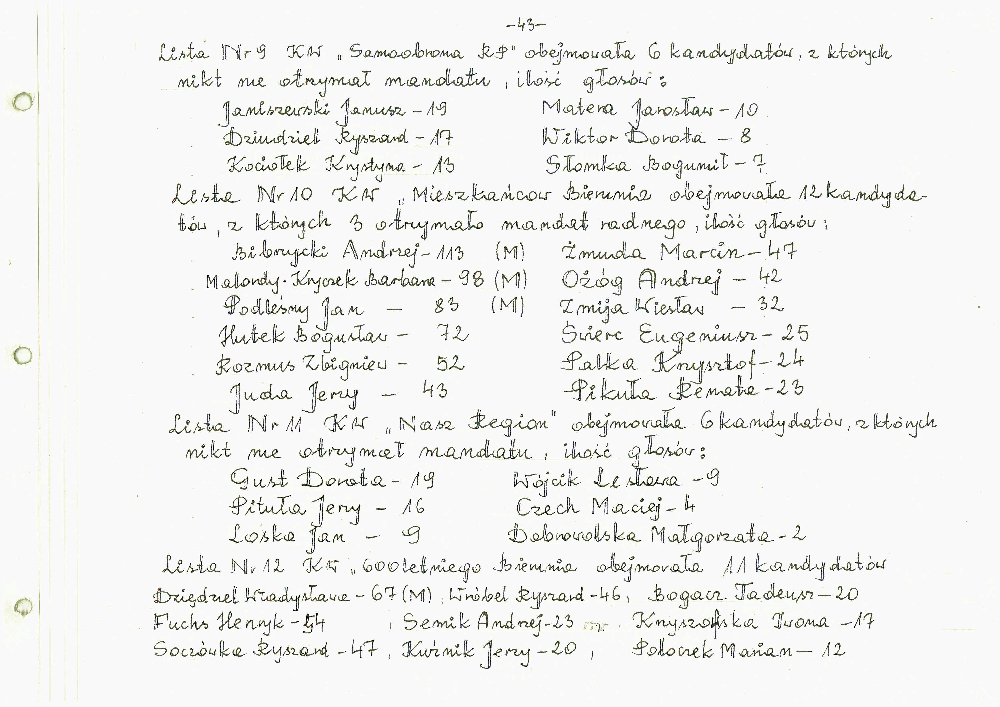 -43-
Lista Nr 9 KW „Samoobrona RP" obejmowała 6 kandydatów, z których
nikt nie otrzymał mandatu, ilość głosów:
Janiszewski Janusz - 19 Matera Jarosław - 10
Dziudziel Ryszard - 17 Wiktor Dorota - 8
Kociołek Krystyna - 13 Słomka Bogumił - 7
Lista Nr 10 KW „Mieszkańcow Biemnia obejmowała 12 kandyda-
tów, z których 3 otrzymało mandat radnego, ilość głosów:
Bibrzycki Andrzej - 113 (M) Żmuda Marcin - 47
Malondy-Kryczek Barbara - 98 (M) Ożóg Andrzej - 42
Podleśny Jan - 83 (M) Żmija Wiesław - 32
Hutek Bogusław - 72 Świerc Eugeniusz - 25
Rozmus Zbigniew - 52 Pałka Krzysztof - 24
Juda Jerzy - 43 Pikuła Renata - 23
Lista Nr 11 KW „Nasz Region" obejmowała 6 kandydatów, z których
nikt nie otrzymał mandatu, ilość głosów:
Gust Dorota - 19 Wójcik Lesława - 9
Pituła Jerzy - 16 Czech Maciej - 4
Loska Jan - 9 Dobrowolska Małgorzata - 2
Lista Nr 12 KW „600letniego Biemnia obejmowała 11 kandydatów
Dziędziel Władysława - 67 (M), Wróbel Ryszard - 46, Bogacz Tadeusz - 20
Fuchs Henryk - 54, Semik Andrzej - 23 Knyszofska Iwona - 17
Soczówka Ryszard - 47, Kuźnik Jerzy - 20, Połoczek Marian - 12